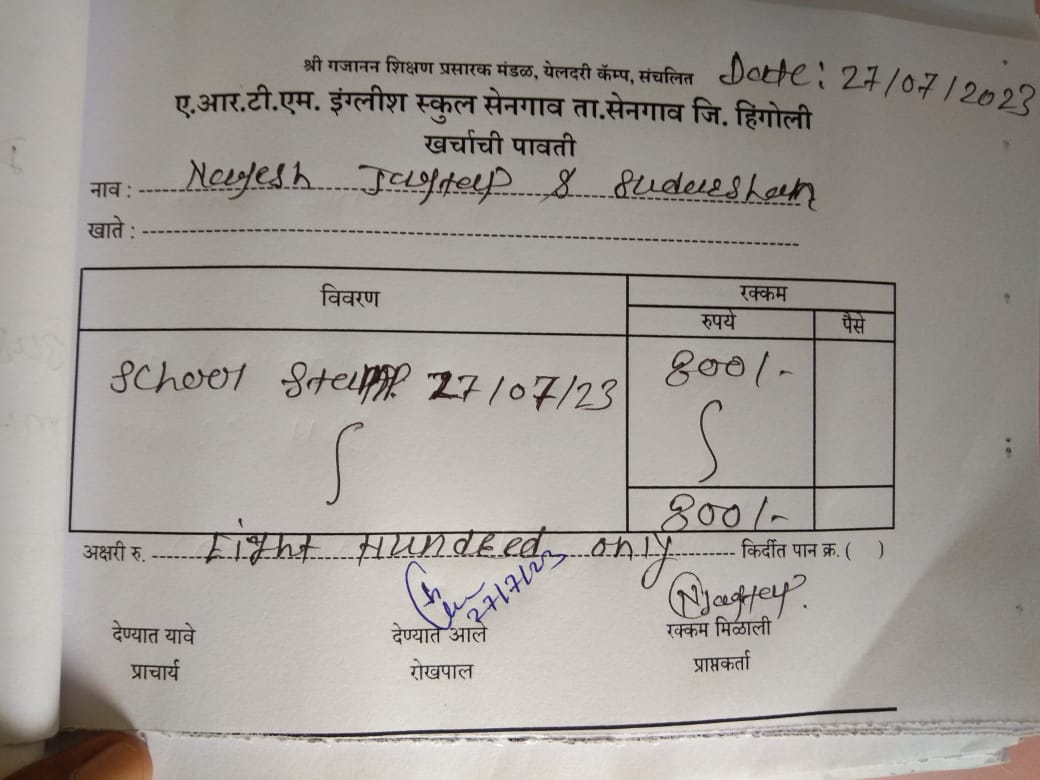 श्री गजानन शिक्षण प्रसारक मंडळ, येलदरी कॅम्प, संचलित Date: 27/07/2023
ए.आर.टी.एम. इंग्लीश स्कुल सेनगाव ता.सेनगाव जि. हिंगोली
खर्चाची पावती
नाव : Nagesh Jagtap & Sudarshan
खाते :
विवरण रक्कम
रुपये पैसे
School 27/07/23 800/-
800/-
अक्षरी रु. Eight Hundred only किर्दीत पान क्र. ( )
27/7/23 NJagtap.
देण्यात यावे देण्यात आले रक्कम मिळाली
प्राचार्य रोखपाल प्राप्तकर्ता